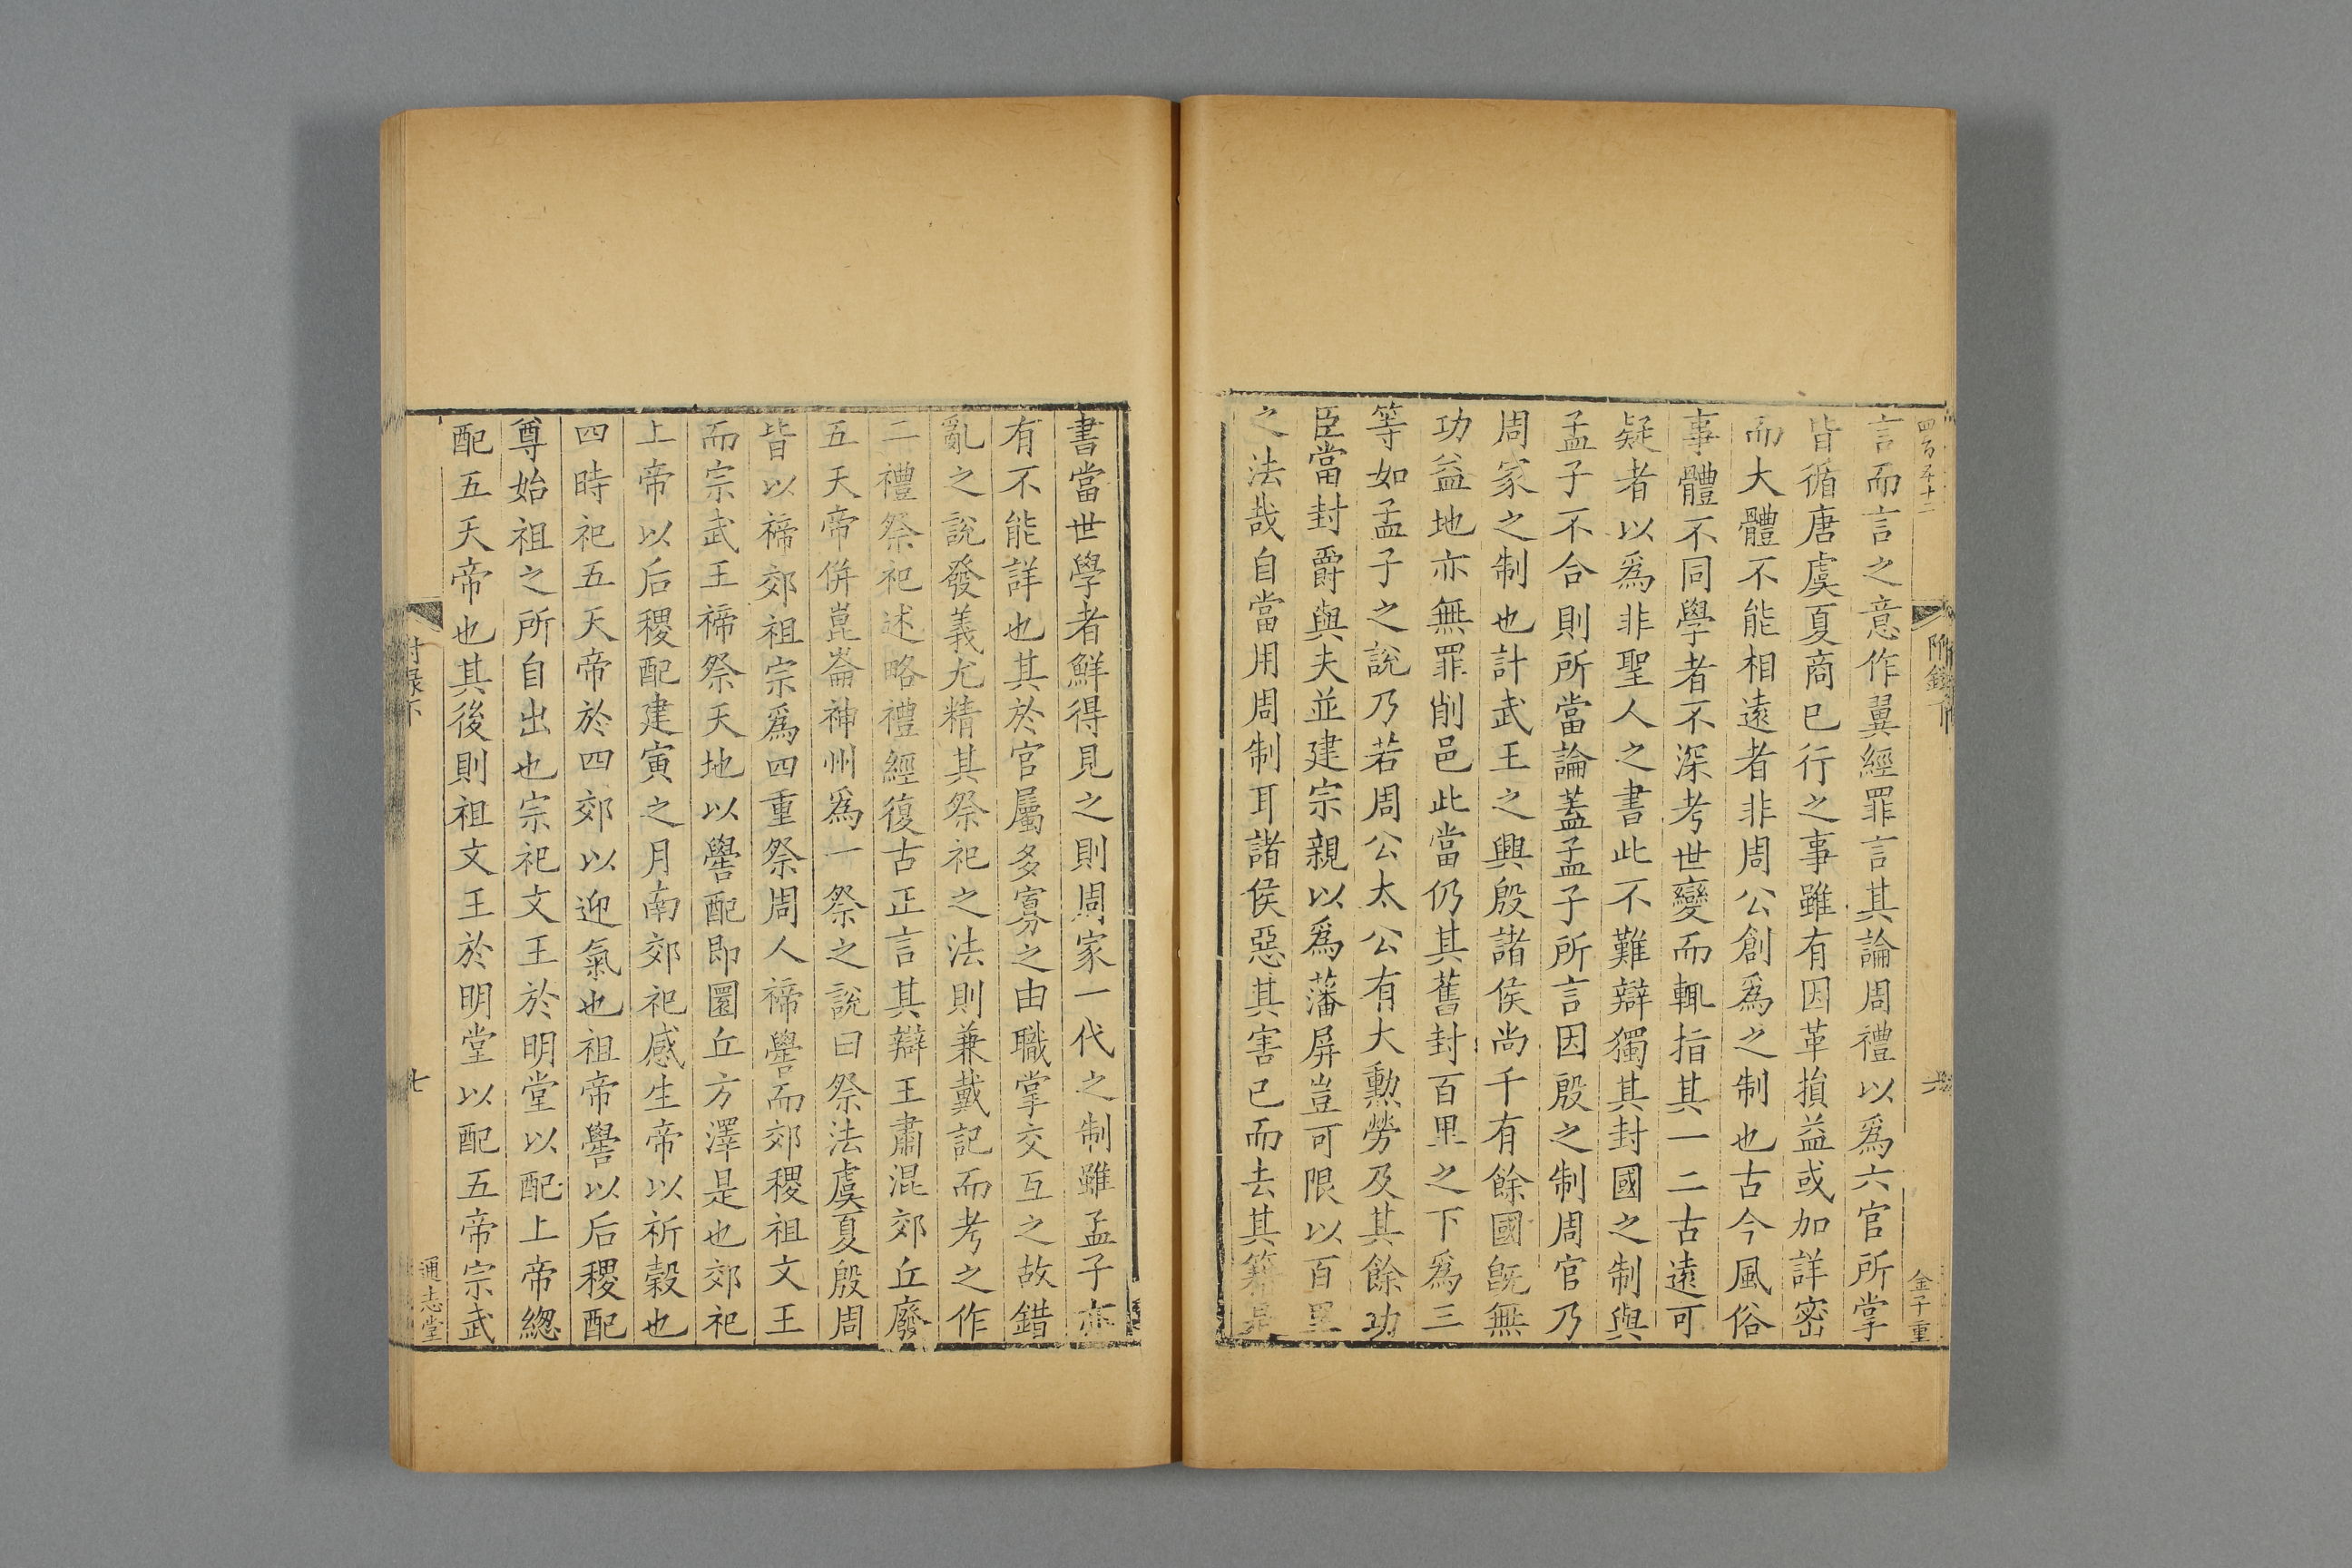 四百五十二
附錄下
六
金子重
言而言之意作翼經罪言其論周禮以爲六官所掌
皆循唐虞夏商已行之事雖有因革損益或加詳密
而大體不能相遠者非周公創爲之制也古今風俗
事體不同學者不深考世變而輒指其一二古遠可
疑者以爲非聖人之書此不難辯獨其封國之制與
孟子不合則所當論蓋孟子所言因殷之制周官乃
周家之制也計武王之興殷諸侯尚千有餘國旣無
功益地亦無罪削邑此當仍其舊封百里之下爲三
等如孟子之說乃若周公太公有大勳勞及其餘功
臣當封爵與夫並建宗親以爲藩屏豈可限以百里
之法哉自當用周制耳諸侯惡其害已而去其籍是
書當世學者鮮得見之則周家一代之制雖孟子亦
有不能詳也其於官屬多寡之由職掌交互之故錯
亂之說發義尤精其祭祀之法則兼戴記而考之作
二禮祭祀述略禮經復古正言其辯王肅混郊丘廢
五天帝併崑崙神州爲一祭之說曰祭法虞夏殷周
皆以禘郊祖宗爲四重祭周人禘嚳而郊稷祖文王
而宗武王禘祭天地以嚳配即圜丘方澤是也郊祀
上帝以后稷配建寅之月南郊祀感生帝以祈穀也
四時祀五天帝於四郊以迎氣也祖帝嚳以后稷配
尊始祖之所自出也宗祀文王於明堂以配上帝緫
配五天帝也其後則祖文王於明堂以配五帝宗武
附錄下
七
通志堂